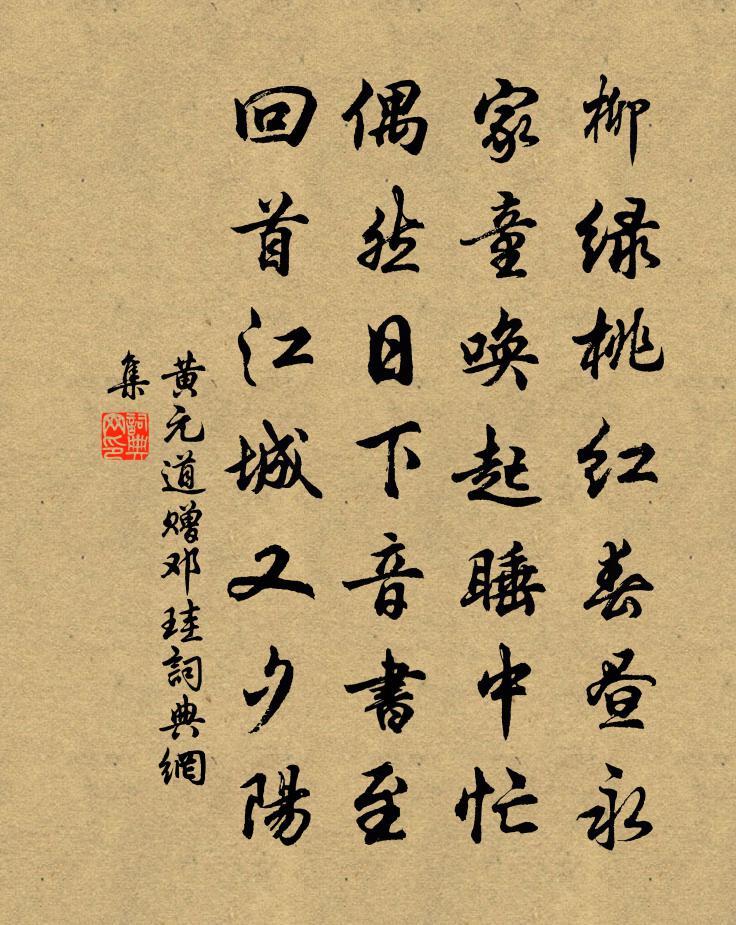 柳绿桃红春昼永
家童唤起睡中忙
偶然日下音書至
回首江城又夕陽
黄元道赠邓珪詞典網
集
詞典
网印